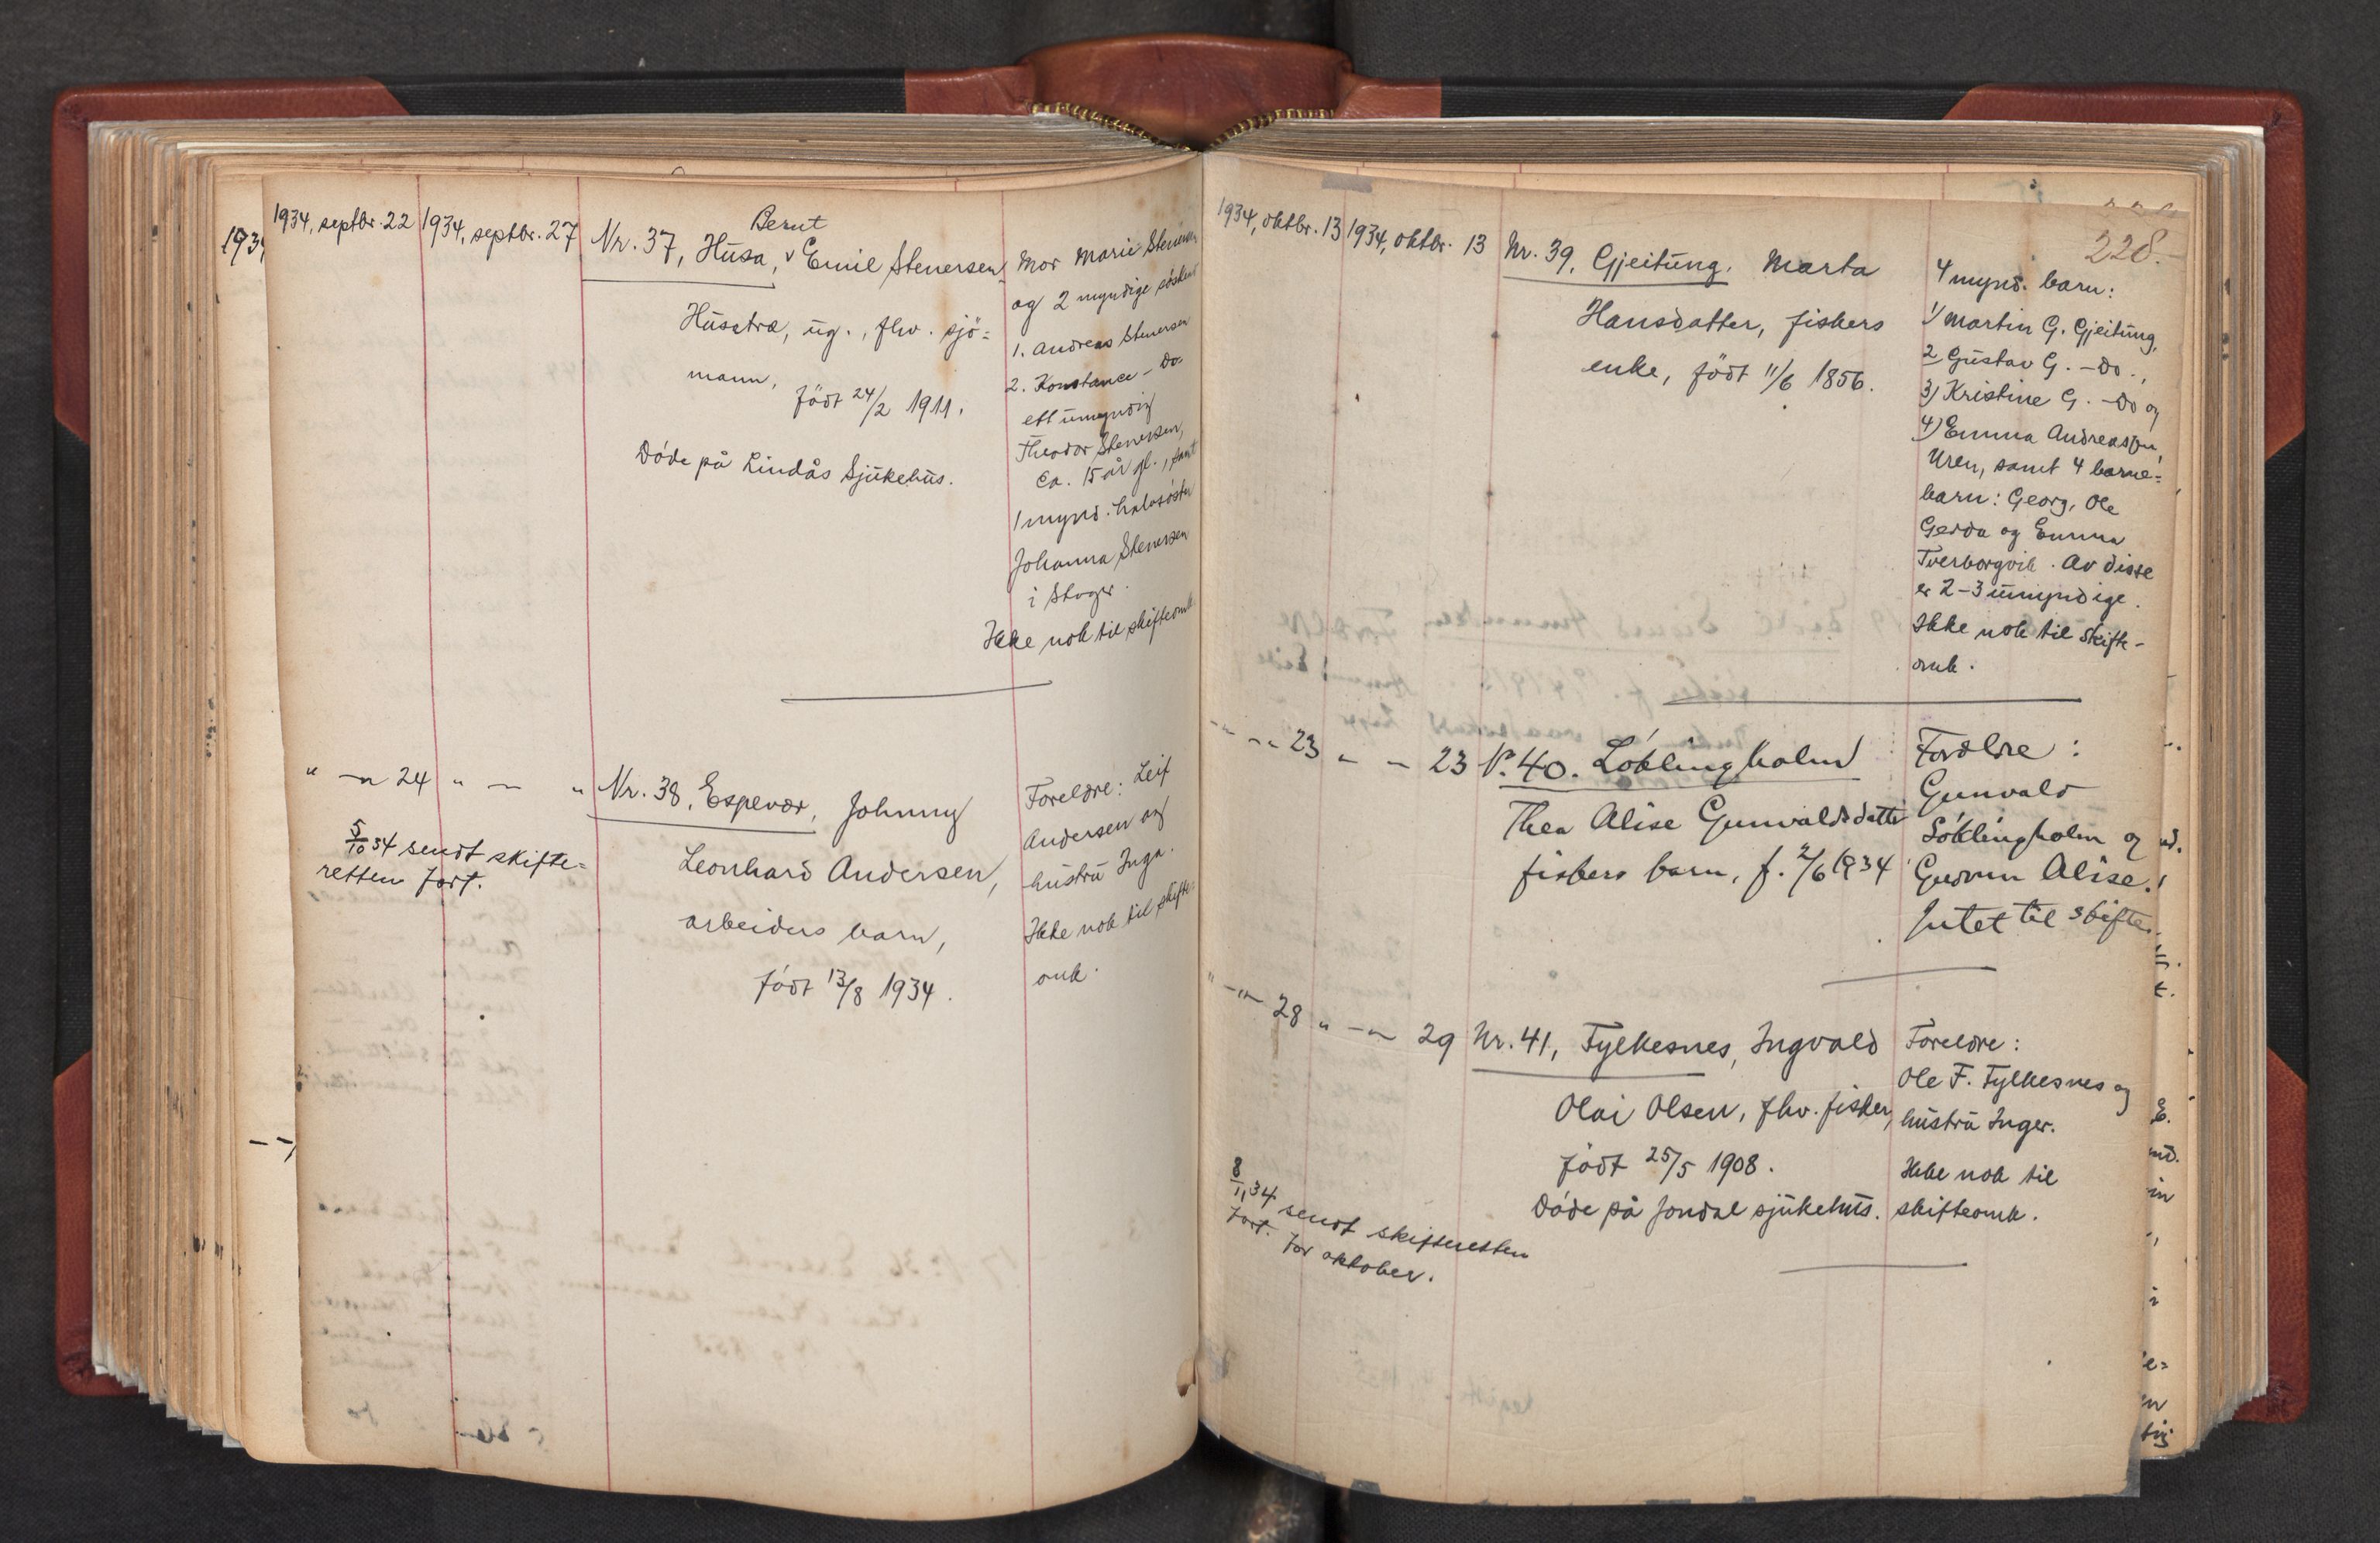 1934, septbr. 22 1934, septbr. 27 Nr. 37, Husa, Bernt Emil Stenersen
Husatræ, ug., fhv. sjö=
mann,
född 24/2 1911.
Döde på Lindås Sjukehus.
Mor Marie Stenersen
og 2 myndige søsken
1. Andreas Stenersen
2. Konstance - Do.
ett umyndig
Theodor Stenersen,
ca. 15 år gl., samt
1 mynd. halvsøster
Johanna Stenersen
i Skoger.
Ikke nok til skifteomk.
" -"- 24 " - " Nr. 38, Espevær, Johnny
Leonhard Andersen,
arbeiders barn,
född 13/8 1934.
Foreldre: Leif
Andersen og
hustru Inga.
Ikke nok til skifte-
omk.
5/10 34 sendt skifte=
retten fort.
228.
1934, oktbr. 13 1934, oktbr. 13 Nr. 39, Gjeitung, Marta
Hansdatter, fiskers
enke, född 11/6 1856.
4 mynd. barn:
1/ Martin G. Gjeitung,
2 Gustav G. - Do.,
3) Kristine G. - Do og
4) Emma Andreassen,
Uren, samt 4 barne=
barn: Georg, Ole
Gerda og Emma
Tverborgvik. Av disse
er 2-3 umyndige.
Ikke nok til skifte-
omk.
" -"- 23 " - 23 Nr. 40. Löklingholm
Thea Alise Gunvaldsdatter
fiskers barn, f. 2/6 1934
Forældre:
Gunvald
Löklingholm og
Gudrun Alise.
Intet til skifte.
" -"- 28 " -"- 29 Nr. 41, Fylkesnes, Ingvald
Olai Olsen, fhv. fisker,
född 25/5 1908.
Döde på Jondal sjukehus.
Foreldre:
Ole F. Fylkesnes og
hustru Inger.
Ikke nok til
skifteomk.
8/11 34 sendt skifteretten
fort. for oktober.